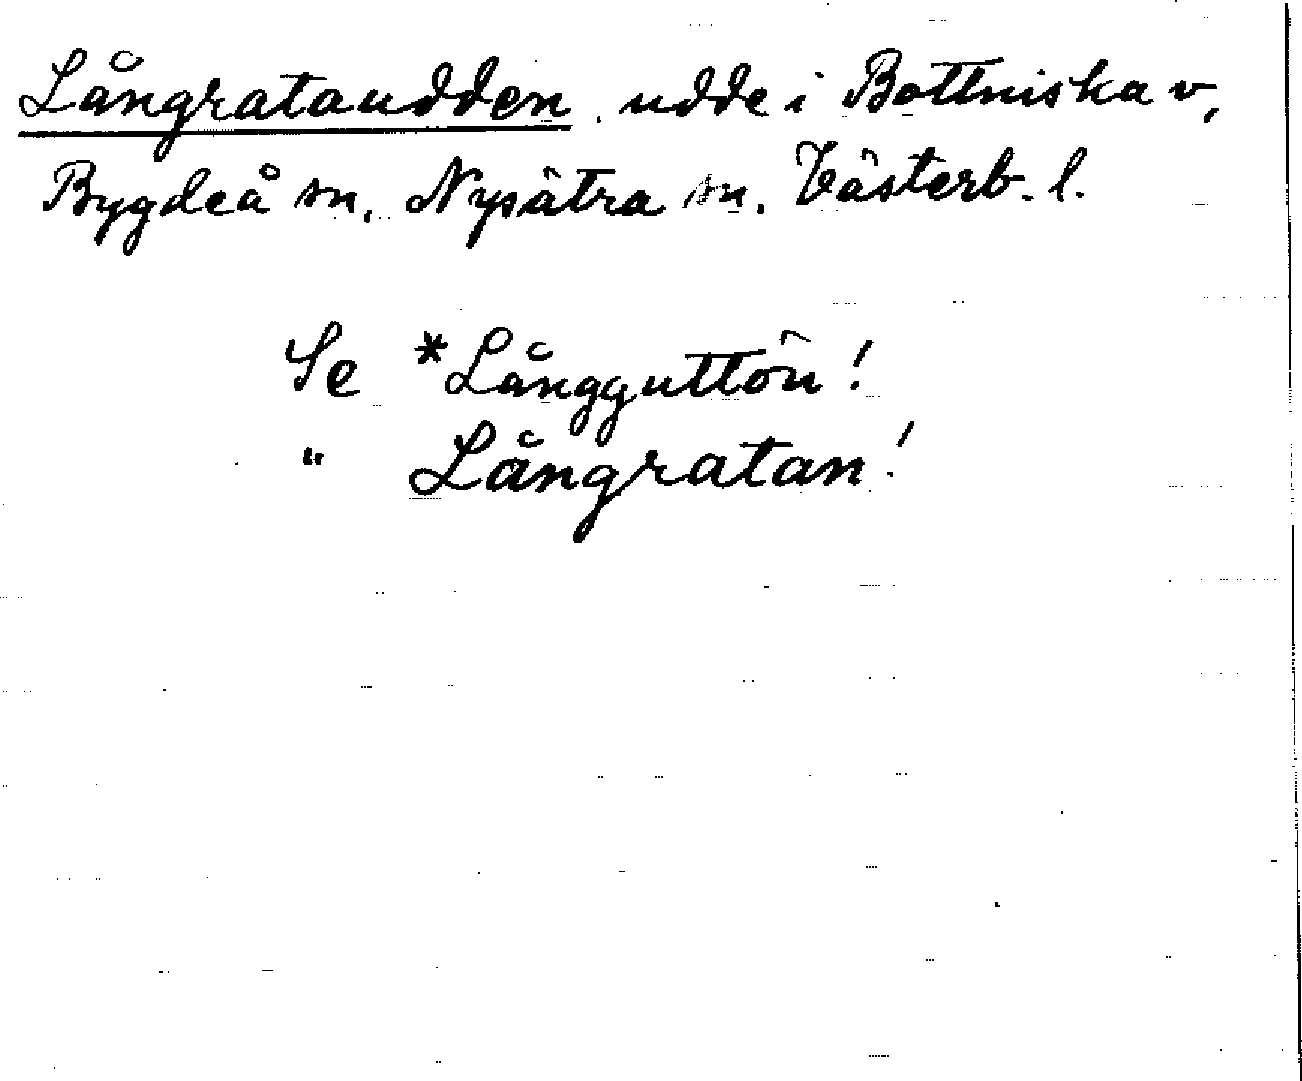 Långrataudden, udde i Bottniska v,
Bygdeå sn, Nysätra sn, Västerb. l.
Se *Långguttön!
" Långratan!